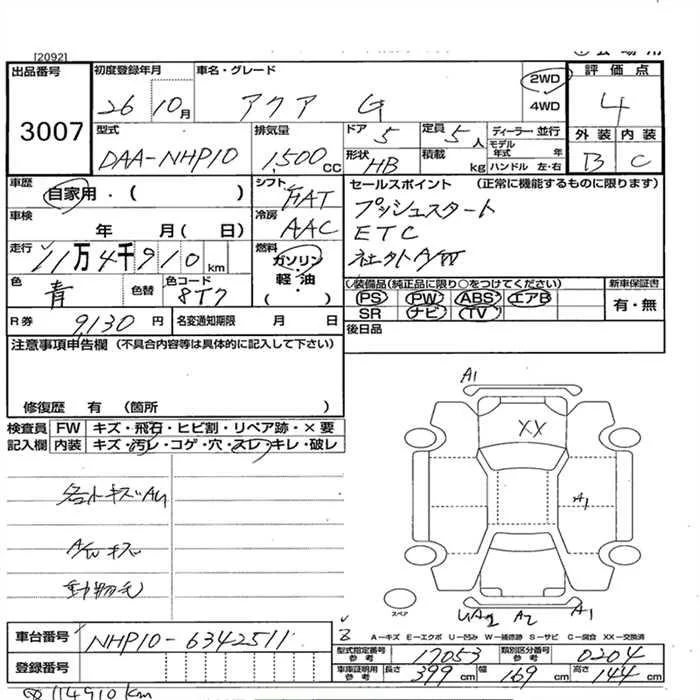 [2092]
出品番号 初度登録年月 車名・グレード 2WD 評価点
3007 26 10月 アクア G 4WD 4
外装 内装
型式 排気量 ドア 5 定員 5人 ディーラー・並行 B C
DAA-NHP10 1,500cc 形状 HB 積載 kg モデル年式 年
ハンドル 左・右
車歴 自家用・( ) シフト FAT セールスポイント (正常に機能するものに限ります)
車検 年 月( 日) 冷房 AAC プッシュスタート
ETC
走行 11万4千910km 燃料 ガソリン・軽・油・( ) 社外A/W
色 青 色替 色コード 8T7
装備品(純正品に限り○をつけてください) 新車保証書
PS PW ABS エアB 有・無
SR ナビ TV
R券 9,130円 名変通知期限 月 日 後日品
注意事項申告欄 (不具合内容等は具体的に記入して下さい)
修復歴 有 (箇所 )
検査員 FW キズ・飛石・ヒビ割・リペア跡・×要
記入欄 内装 キズ・汚レ・コゲ・穴・スレ・キレ・破レ
各トキズAU
A/Wキズ
動物毛
A1
XX
A1
A2 A1
スペア
A-キズ E-エクボ U-凹み W-補修跡 S-サビ C-腐食 XX-交換済
車台番号 NHP10-6342511
型式指定番号 参考 17053 類別区分番号 参考 0204
登録番号
車庫証明用 参考 長さ 399cm 幅 169cm 高さ 144cm
114910km